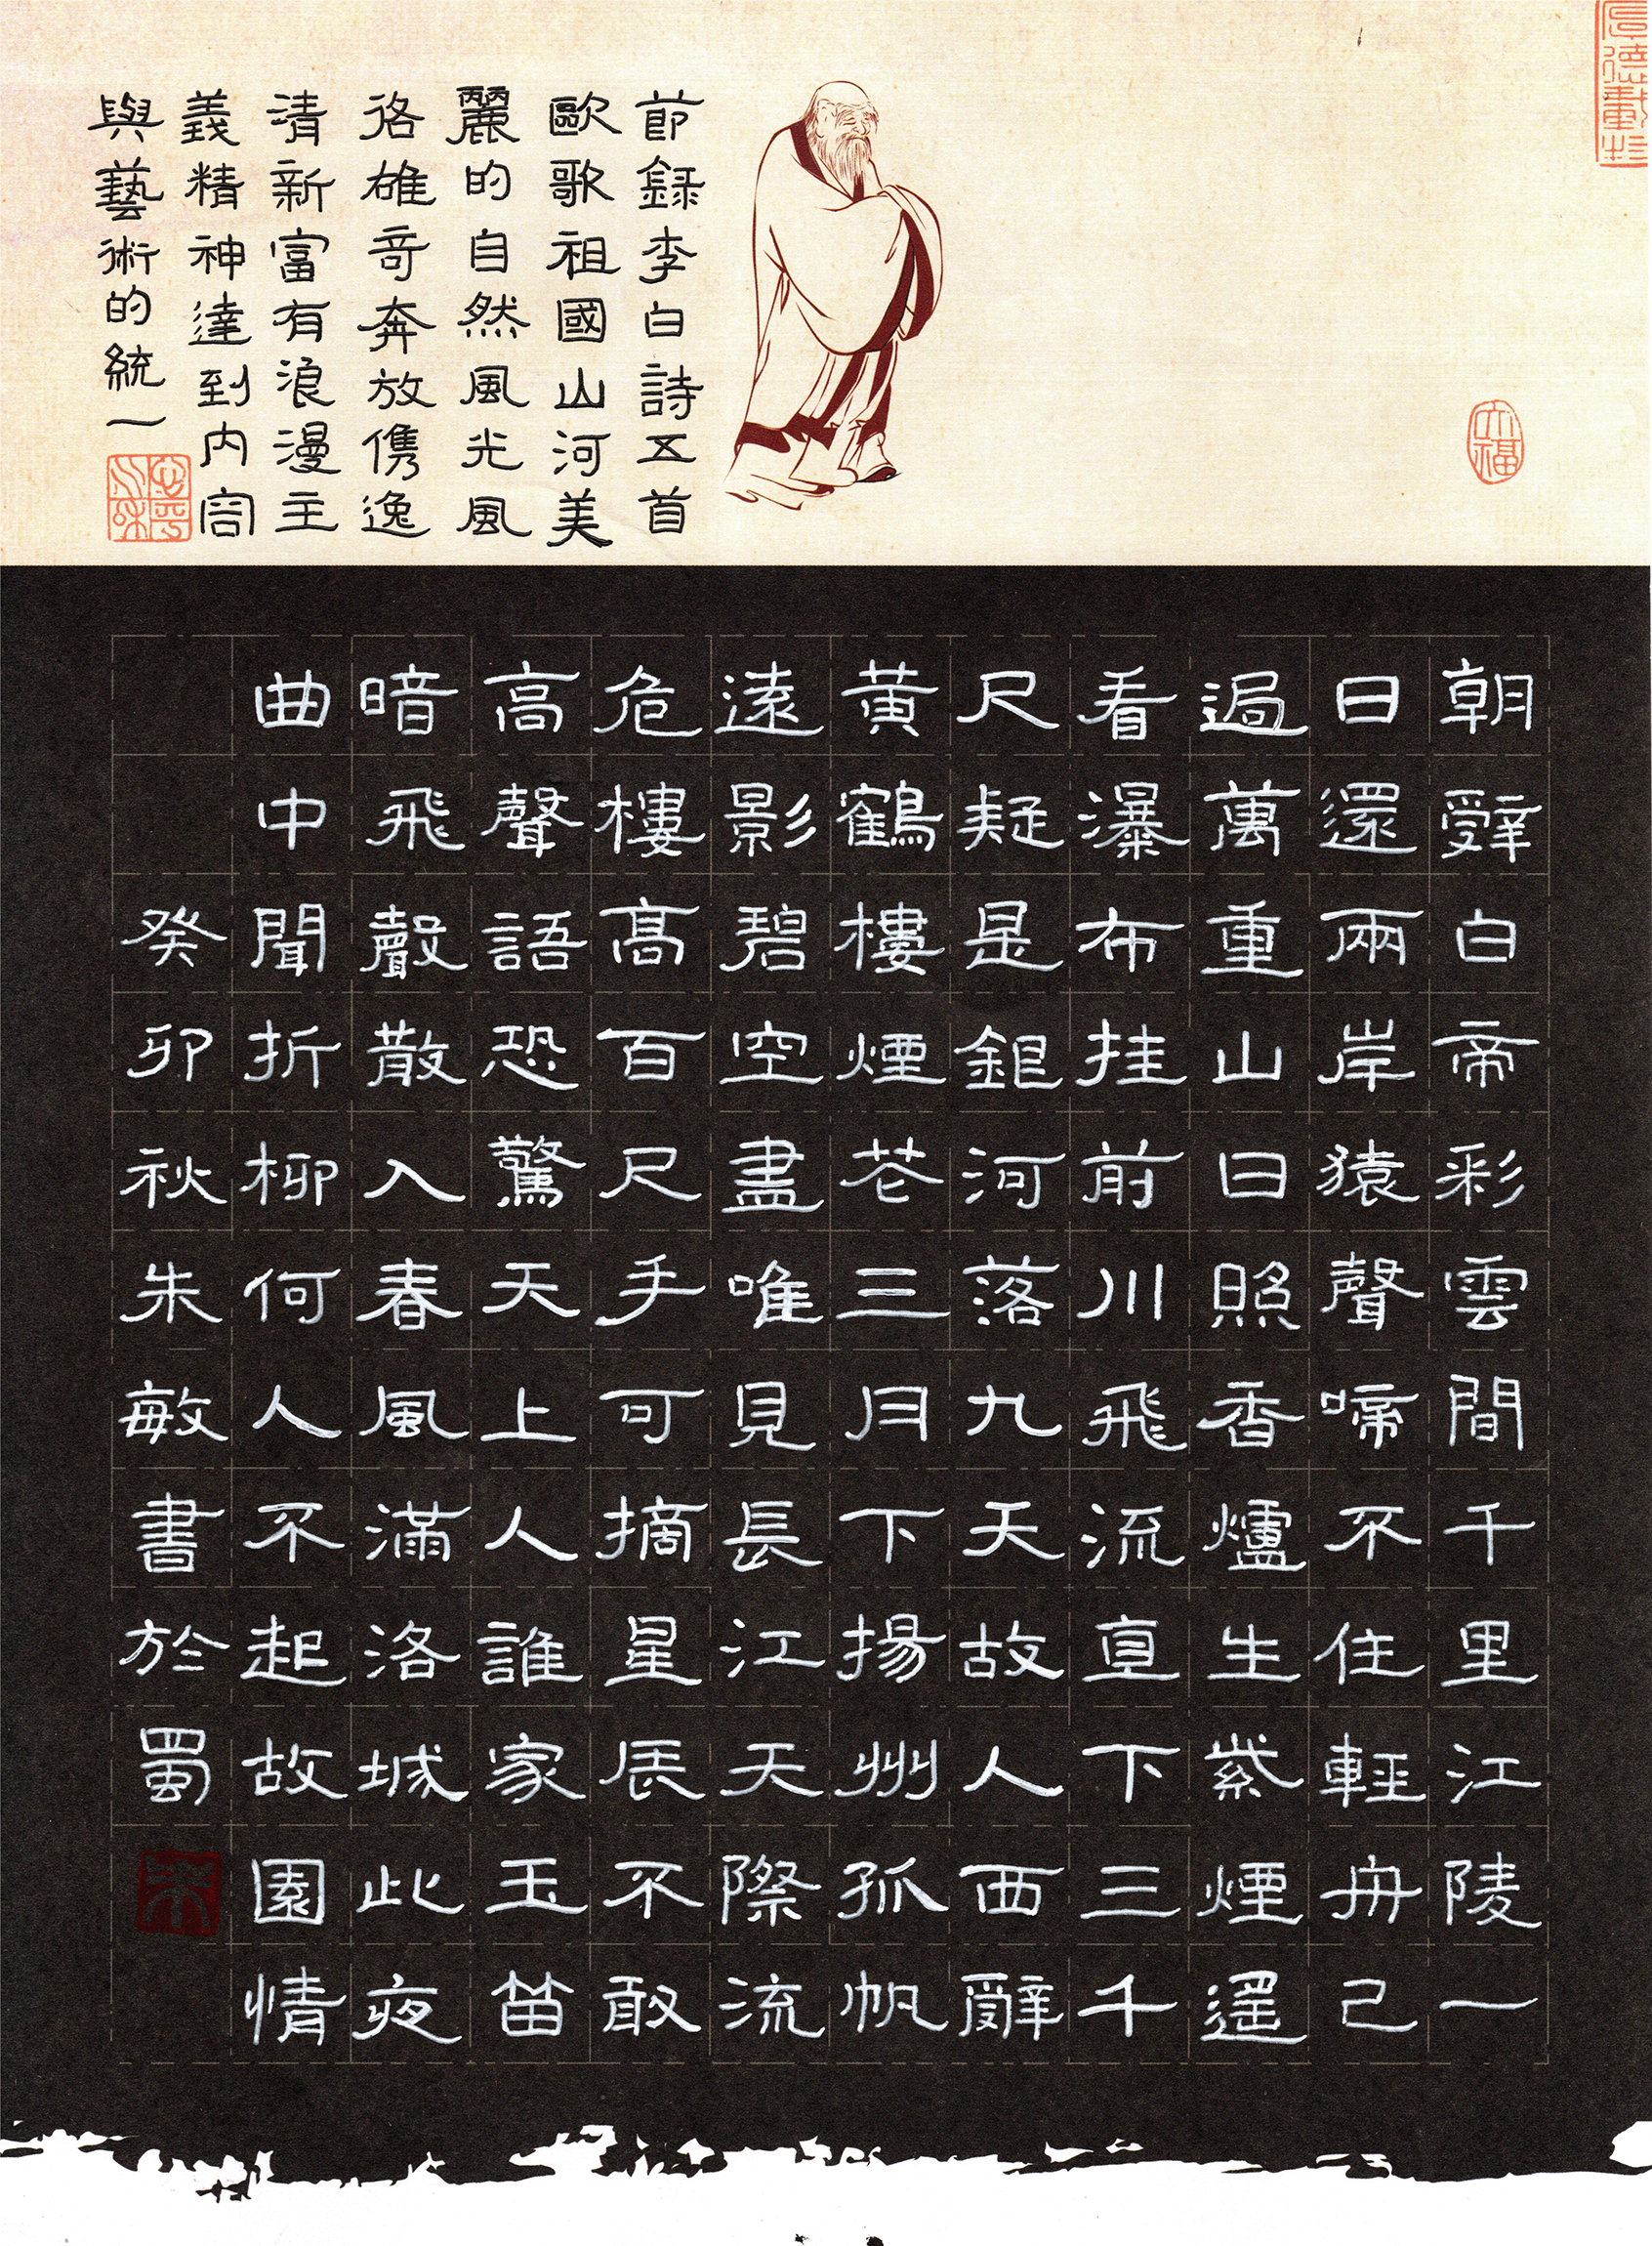 厚德載物
節錄李白詩五首
歐歌祖國山河美
麗的自然風光風
格雄奇奔放儁逸
清新富有浪漫主
義精神達到内容
與藝術的統一
朝辭白帝彩雲間千里江陵一
日還兩岸猿聲啼不住輕舟已
過萬重山日照香爐生紫煙遙
看瀑布挂前川飛流直下三千
尺疑是銀河落九天故人西辭
黃鶴樓煙花三月下揚州孤帆
遠影碧空盡唯見長江天際流
危樓高百尺手可摘星辰不敢
高聲語恐驚天上人誰家玉笛
暗飛聲散入春風滿洛城此夜
曲中聞折柳何人不起故園情
癸卯秋朱敏書於蜀
朱